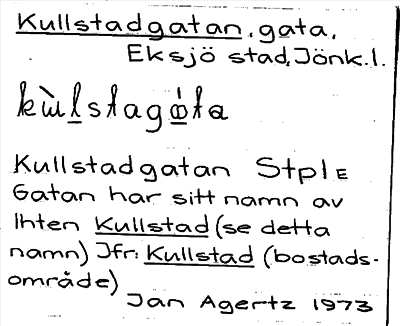 Kullstadgatan, gata,
Eksjö stad, Jönk.l.
kùlstagát̲a
Kullstadgatan StplE
Gatan har sitt namn av
lhten Kullstad (se detta
namn) Jfr: Kullstad (bostads-
område)
Jan Agertz 1973